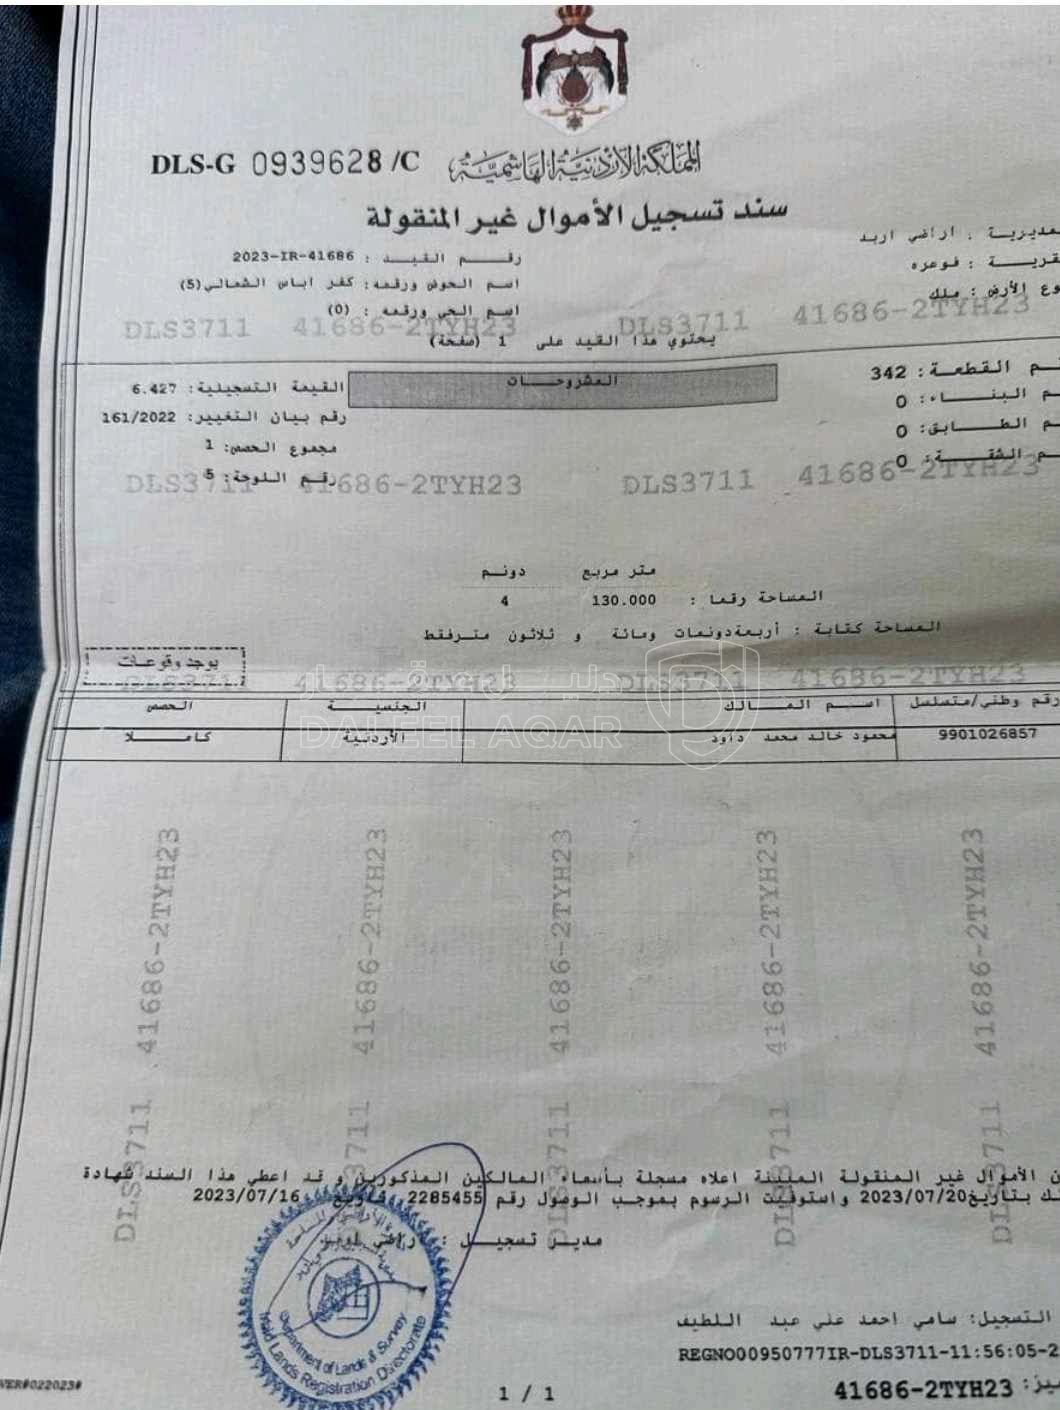 المملكة الأردنية الهاشمية
DLS-G 0939628 /C
سند تسجيل الأموال غير المنقولة
مديرية : اراضي اربد
رقم القيد : 2023-IR-41686
قرية : فوعره
اسم الحوض ورقمه: كفر اباس الشمالي(5)
وع الأرض : ملك
اسم الحي ورقمه : (0)
DLS3711 41686-2TYH23 DLS3711 41686-2TYH23
يحتوي هذا القيد على 1 (صفحة)
م القطعة: 342
المشروحات
القيمة التسجيلية: 6.427
م البناء: 0
رقم بيان التغيير: 161/2022
م الطابق: 0
مجموع الحصص: 1
م الشقة: 0
رقم اللوحة: 5
DLS3711 41686-2TYH23 DLS3711 41686-2TYH23
متر مربع دونم
المساحة رقما : 130.000 4
المساحة كتابة : أربعةدونمات ومائة و ثلاثون مترفقط
يوجد وقوعات
DLS3711 41686-2TYH23 DLS3711 41686-2TYH23
دليل عقار
DALEEL AQAR
رقم وطني/متسلسل اسم المالك الجنسية الحصص
9901026857 محمود خالد محمد داود الأردنية كاملا
DLS3711 41686-2TYH23
DLS3711 41686-2TYH23
DLS3711 41686-2TYH23
DLS3711 41686-2TYH23
DLS3711 41686-2TYH23
ن الأموال غير المنقولة المبينة اعلاه مسجلة بأسماء المالكين المذكورين و قد اعطي هذا السند شهادة
ك بتاريخ2023/07/20 واستوفيت الرسوم بموجب الوصول رقم 2285455 تاريخ 2023/07/16
مدير تسجيل : اراضي اربد
Department of Lands & Survey
Irbid Lands Registration Directorate
التسجيل: سامي احمد علي عبد اللطيف
REGNO00950777IR-DLS3711-11:56:05-2
VER#022023#
1 / 1
ميز: 41686-2TYH23